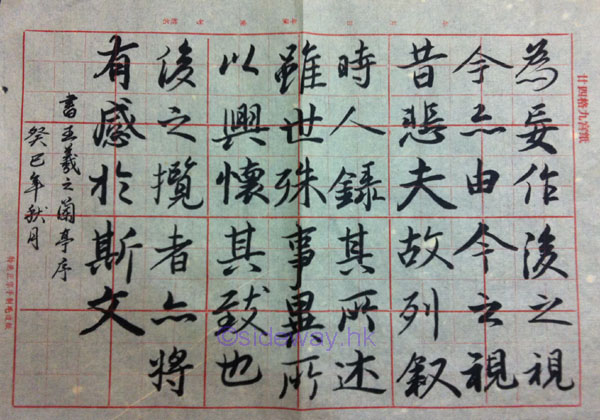 廿四格九宮紙
為妄作後之視
今亦由今之視
昔悲夫故列叙
時人錄其所述
雖世殊事異所
以興懷其致也
後之攬者亦將
有感於斯文
書王羲之蘭亭序
癸巳年秋月
©sideway.hk